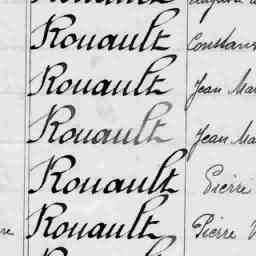 Rouault Constans
Rouault Jean Mar
Rouault Jean Ma
Rouault Pierre
re Rouault Pierre